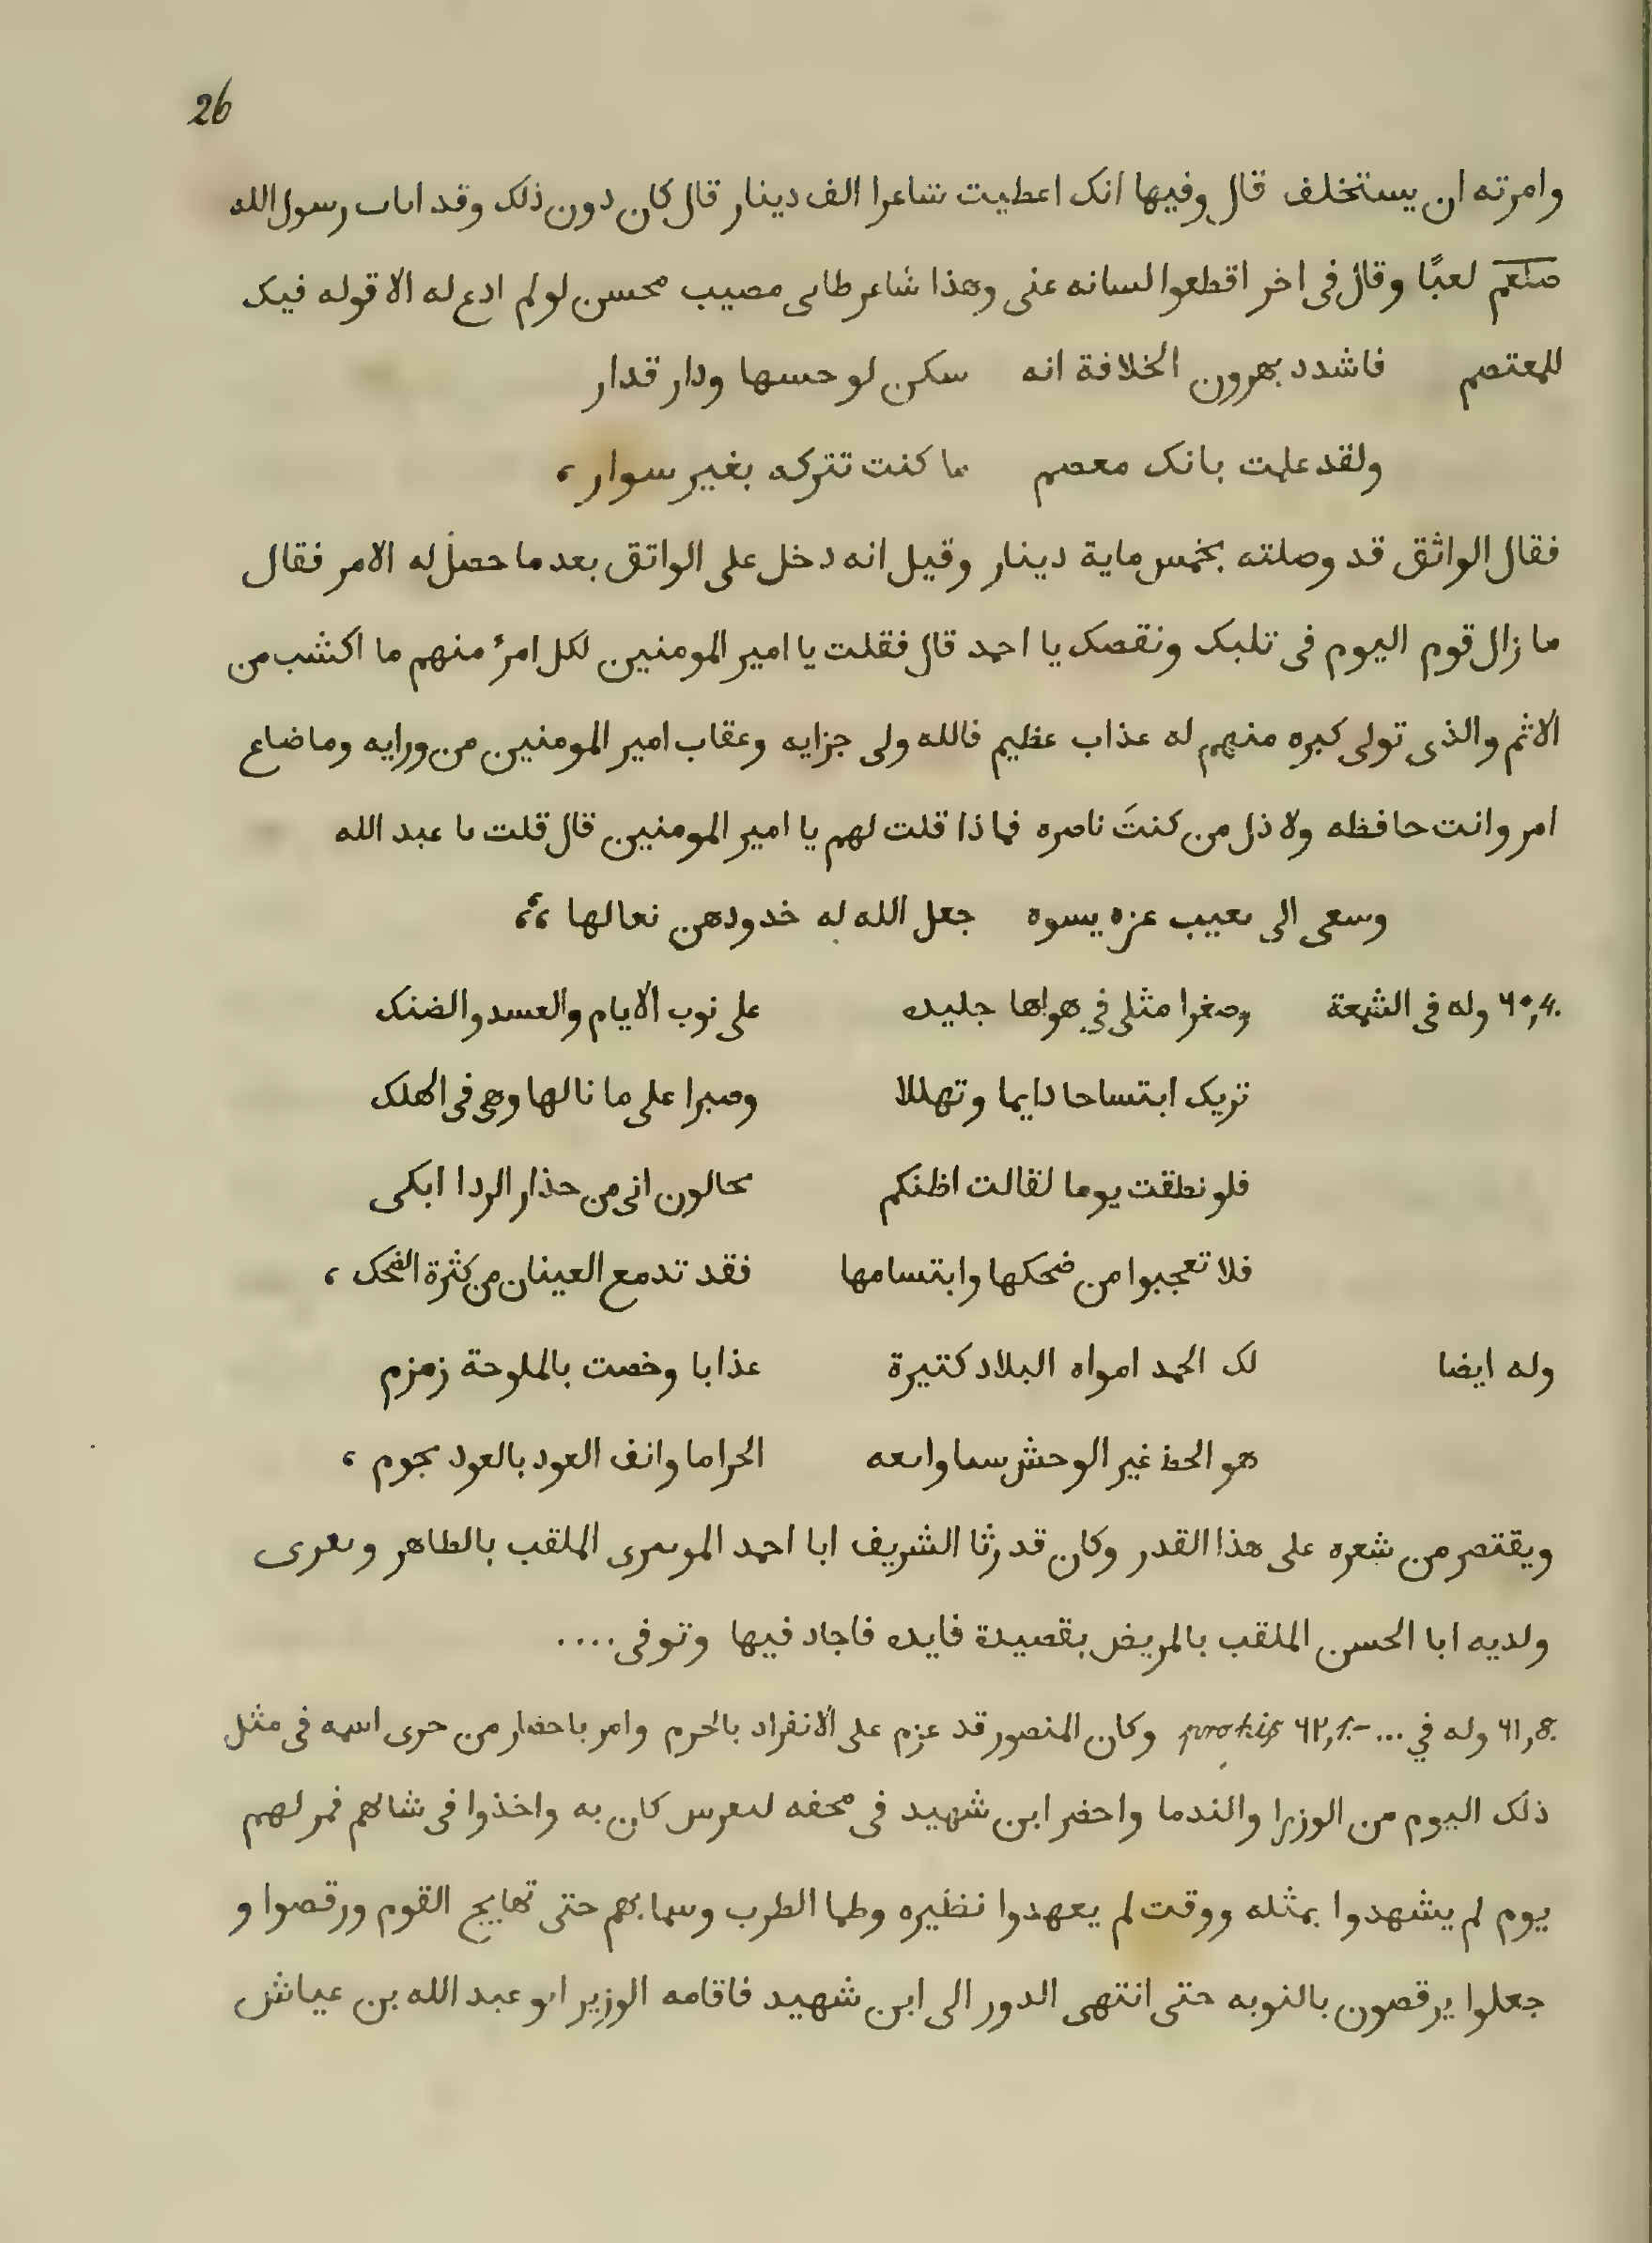 26
وامرته ان يستخلف قال وفيها انك اعطيت شاعرا الف دينار قال كان دون ذلك وقد اىاب رسول الله
صلعم لعبًا وقال فى اخر اقطعوا لسانه عنى وهذا شاعر طاىى مصيب محسن لو لم ادع له الا قوله فيك
للمعتصم فاشدد بهرون الخلافة انه سكن لوحسها ودار قدار
ولقد علمت بانك معصم ما كنت تتركه بغير سوار ،
فقال الواثق قد وصلته بخمس ماية دينار وقيل انه دخل على الواتق بعد ما حصل له الامر فقال
ما زال قوم اليوم فى تلبك ونقصك يا احمد قال فقلت يا امير المومنين لكل امرئ منهم ما اكشب من
الاثم والذى تولى كبره منهم له عذاب عظيم فالله ولى جزايه وعقاب امير المومنين من ورايه وما ضاع
امر وانت حافظه ولا ذل من كنتَ ناصره فما ذا قلت لهم يا امير المومنين قال قلت ىا عبد الله
وسعى الى ىعيب عزه يسوه جعل الله له خدودهن نعالها ،،
٦٠,4. وله فى الشمعة وصغرا مثلى فى هواها جليده على نوب الايام والعسد والضنك
تريك ابتساحا دايما وتهللا وصبرا على ما نالها وهى فى الهلك
فلو نطقت يوما لقالت اظنكم ىحالون انى من حذار الردا ابكى
فلا تعجبوا من ضحكها وابتسامها فقد تدمع العينان من كثرة الضحك ،
وله ايضا لك الحمد امواه البلاد كتيرة عذابا وخصت بالملوحة زمزم
هو الحظ غير الوحش سما واىعه الحراما وانف العود بالعود ىجوم ،
ويقتصر من شعره على هذا القدر وكان قد رثا الشريف ابا احمد الموسرى الملقب بالطاهر وىعرى
ولديه ابا الحسن الملقب بالمريض بقصيدة فايده فاجاد فيها وتوفى ....
٦١,8. وله في ... -.٦٢,1 وكان المنصور قد عزم على الانفراد بالحرم وامر باحضار من حرى اسمه فى مثل
ذلك اليوم من الوزرا والندما واحضر ابن شهيد فى محفه لىعرس كان به واخذوا فى شاىهم فمر لهم
يوم لم يشهدوا بمثله ووقت لم يعهدوا نظيره وطما الطرب وسما بهم حتى تهايج القوم ورقصوا و
جعلوا يرقصون بالنوبه حتى انتهى الدور الى ابن شهيد فاقامه الوزير اىو عبد الله بن عياش